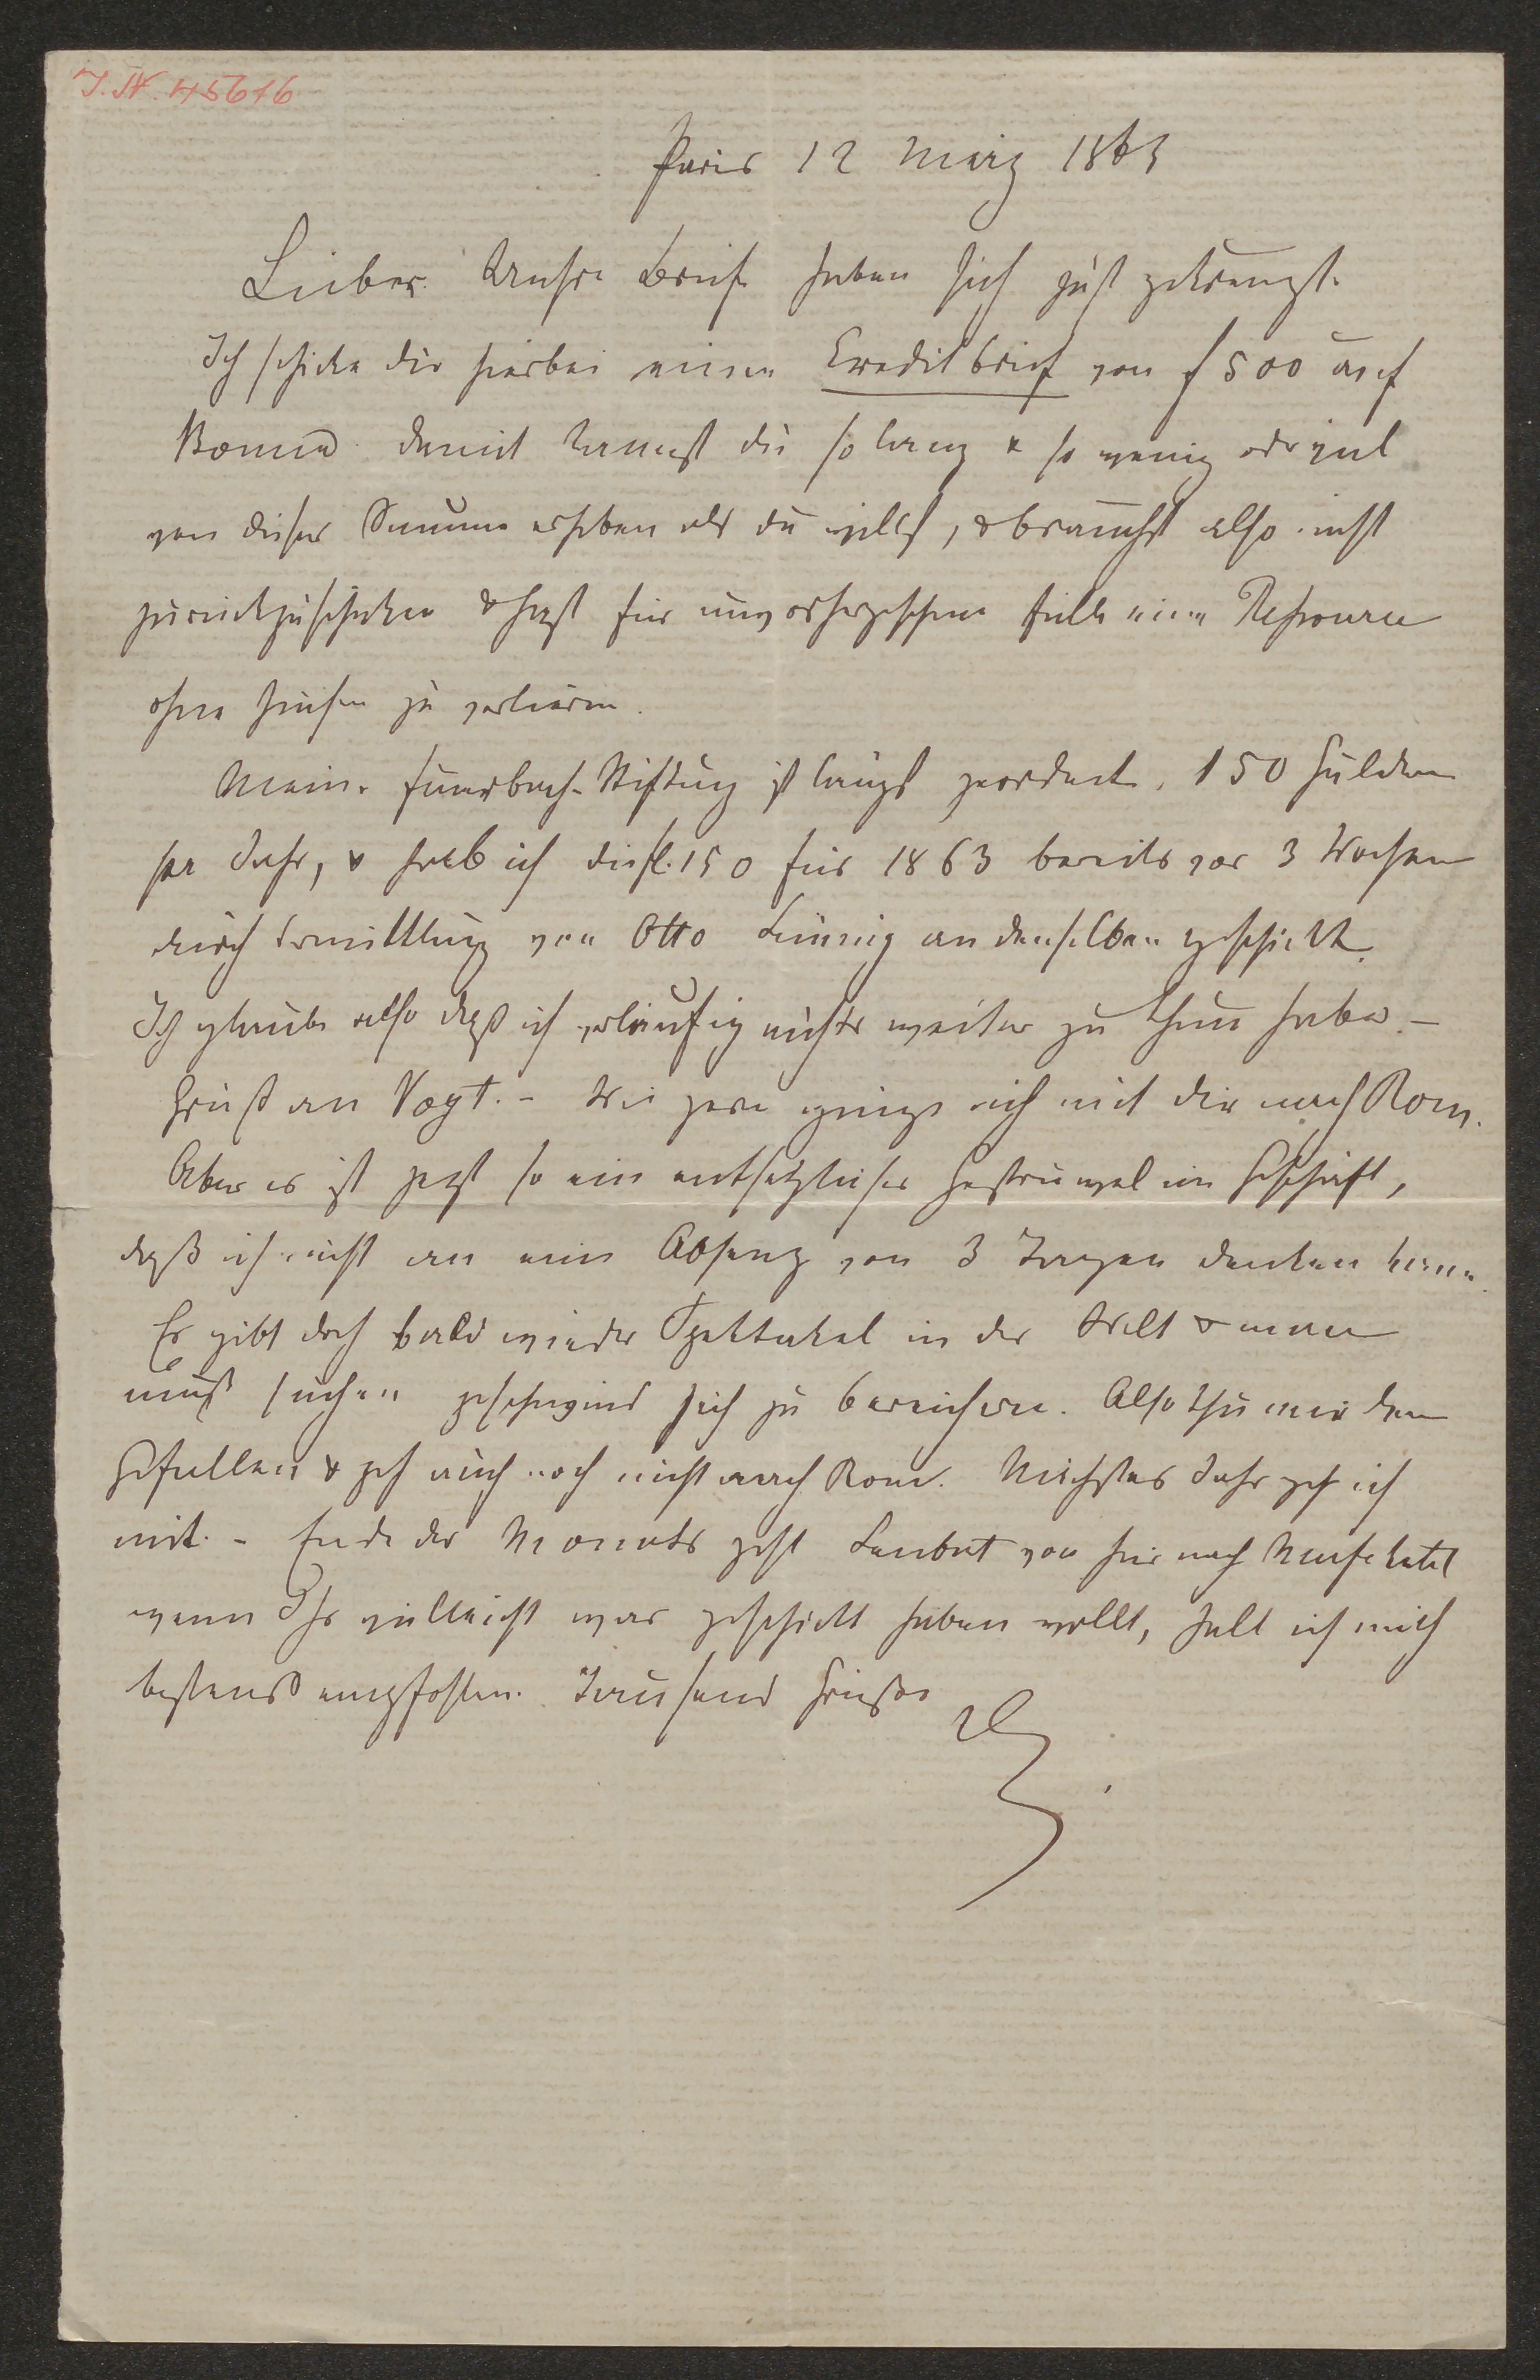 I. N. 45616
Paris 12 März 1863
Lieber. Unsre Briefe haben sich just gekreuzt.
Ich schicke dir hierbei einen Creditbrief von f 500 auf
Rom. Damit kannst du so lang & so wenig oder viel
von dieser Summe erheben als du willst, & brauchst also nicht
zurückzuschicken & hast für unvorhergesehene Fälle eine Ressource
ohne Zinsen zu verlieren.
Meine Feuerbach-Stiftung ist längst geordnet. 150 Gulden
per Jahr, & hab ich die fl. 150 für 1863 bereits vor 3 Wochen
durch Vermittlung von Otto Lüning an denselben geschickt.
Ich glaube also daß ich vorläufig nichts weiter zu thun habe. –
Gruß an Vogt. – Wie gern ginge ich mit dir nach Rom.
Aber es ist jetzt so ein entsetzliches im Geschäft,
daß ich nicht an eine Absenz von 3 Tagen denken kann.
Es gibt doch bald wieder Spektakel in der Welt & man
muß suchen geschwind sich zu bereichern. Also thu mir den
Gefallen & geh auch noch nicht nach Rom. Nächstes Jahr geh ich
mit. – Ende des Monats geht von hier nach Neufchatel
wenn Ihr vielleicht was geschickt haben wollt, halt ich mich
bestens empfohlen. Tausend Grüße